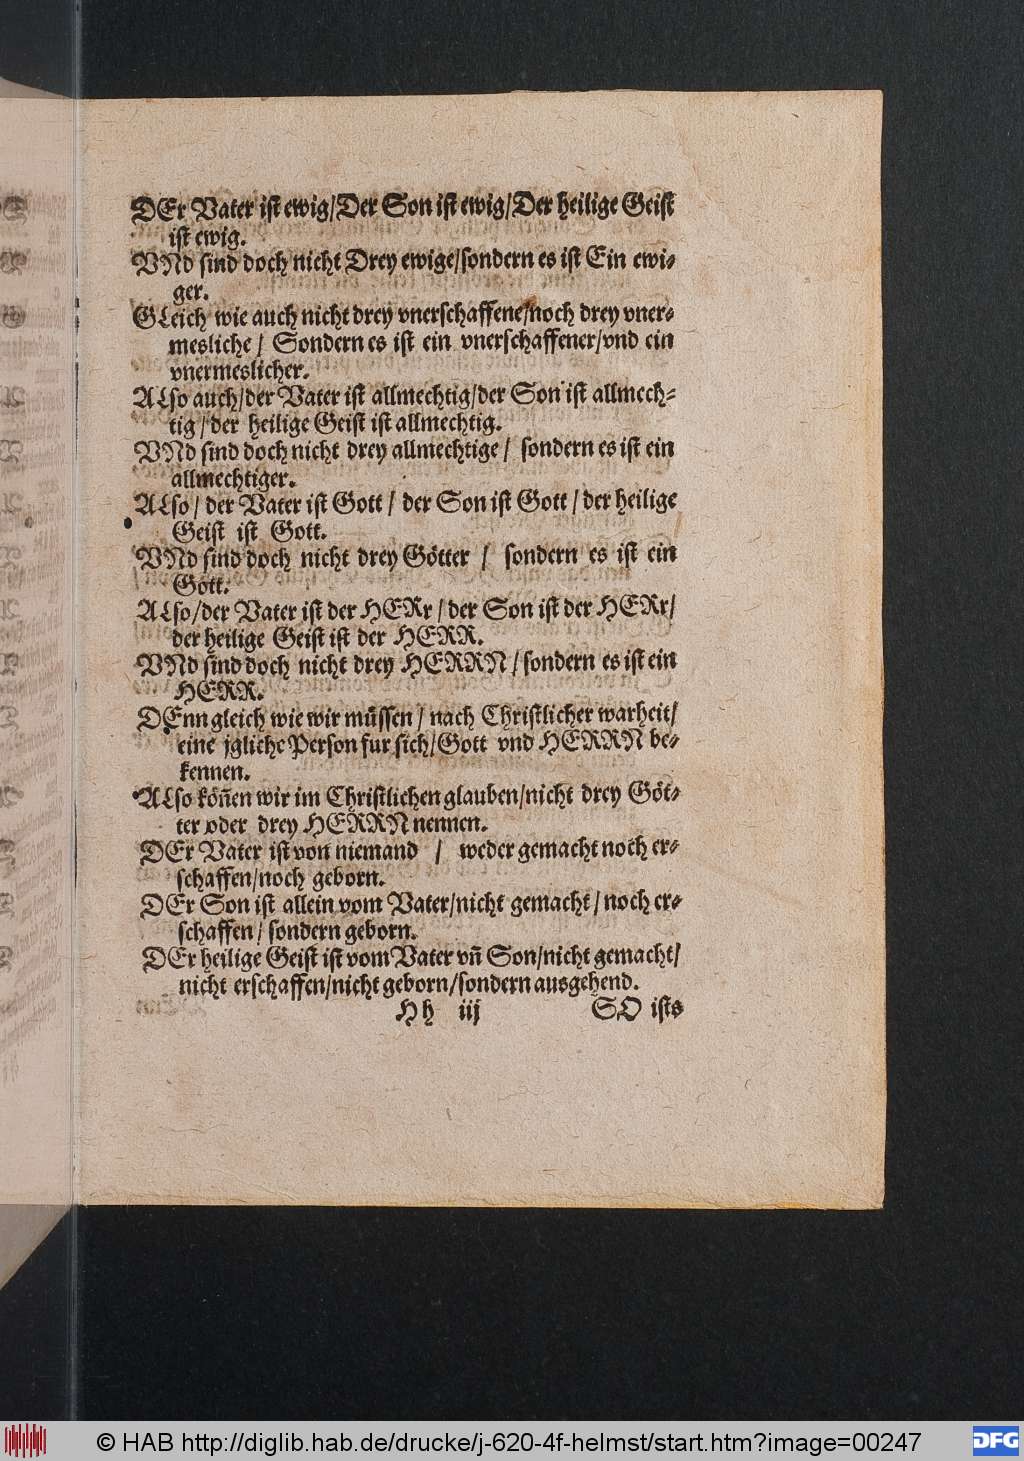 DEr Vater ist ewig/Der Son ist ewig/Der heilige Geist
ist ewig.
VNd sind doch nicht Drey ewige/sondern es ist Ein ewi-
ger.
GLeich wie auch nicht drey vnerschaffene/noch drey vner-
mesliche / Sondern es ist ein vnerschaffener/vnd ein
vnermeslicher.
ALso auch/der Vater ist allmechtig/der Son ist allmech-
tig/der heilige Geist ist allmechtig.
VNd sind doch nicht drey allmechtige / sondern es ist ein
allmechtiger.
ALso / der Vater ist Gott / der Son ist Gott / der heilige
Geist ist Gott.
VNd sind doch nicht drey Götter / sondern es ist ein
Gott.
ALso/der Vater ist der HERr / der Son ist der HERr/
der heilige Geist ist der HERR.
VNd sind doch nicht drey HERRN / sondern es ist ein
HERR.
DEnn gleich wie wir müssen / nach Christlicher warheit/
eine jgliche Person fur sich/Gott vnd HERRN be-
kennen.
ALso köñen wir im Christlichen glauben/nicht drey Göt-
ter oder drey HERRN nennen.
DEr Vater ist von niemand / weder gemacht noch er-
schaffen/noch geborn.
DEr Son ist allein vom Vater/nicht gemacht / noch er-
schaffen / sondern geborn.
DEr heilige Geist ist vom Vater vñ Son/nicht gemacht/
nicht erschaffen/nicht geborn/sondern ausgehend.
Hh iij SO ists
© HAB http://diglib.hab.de/drucke/j-620-4f-helmst/start.htm?image=00247
DFG